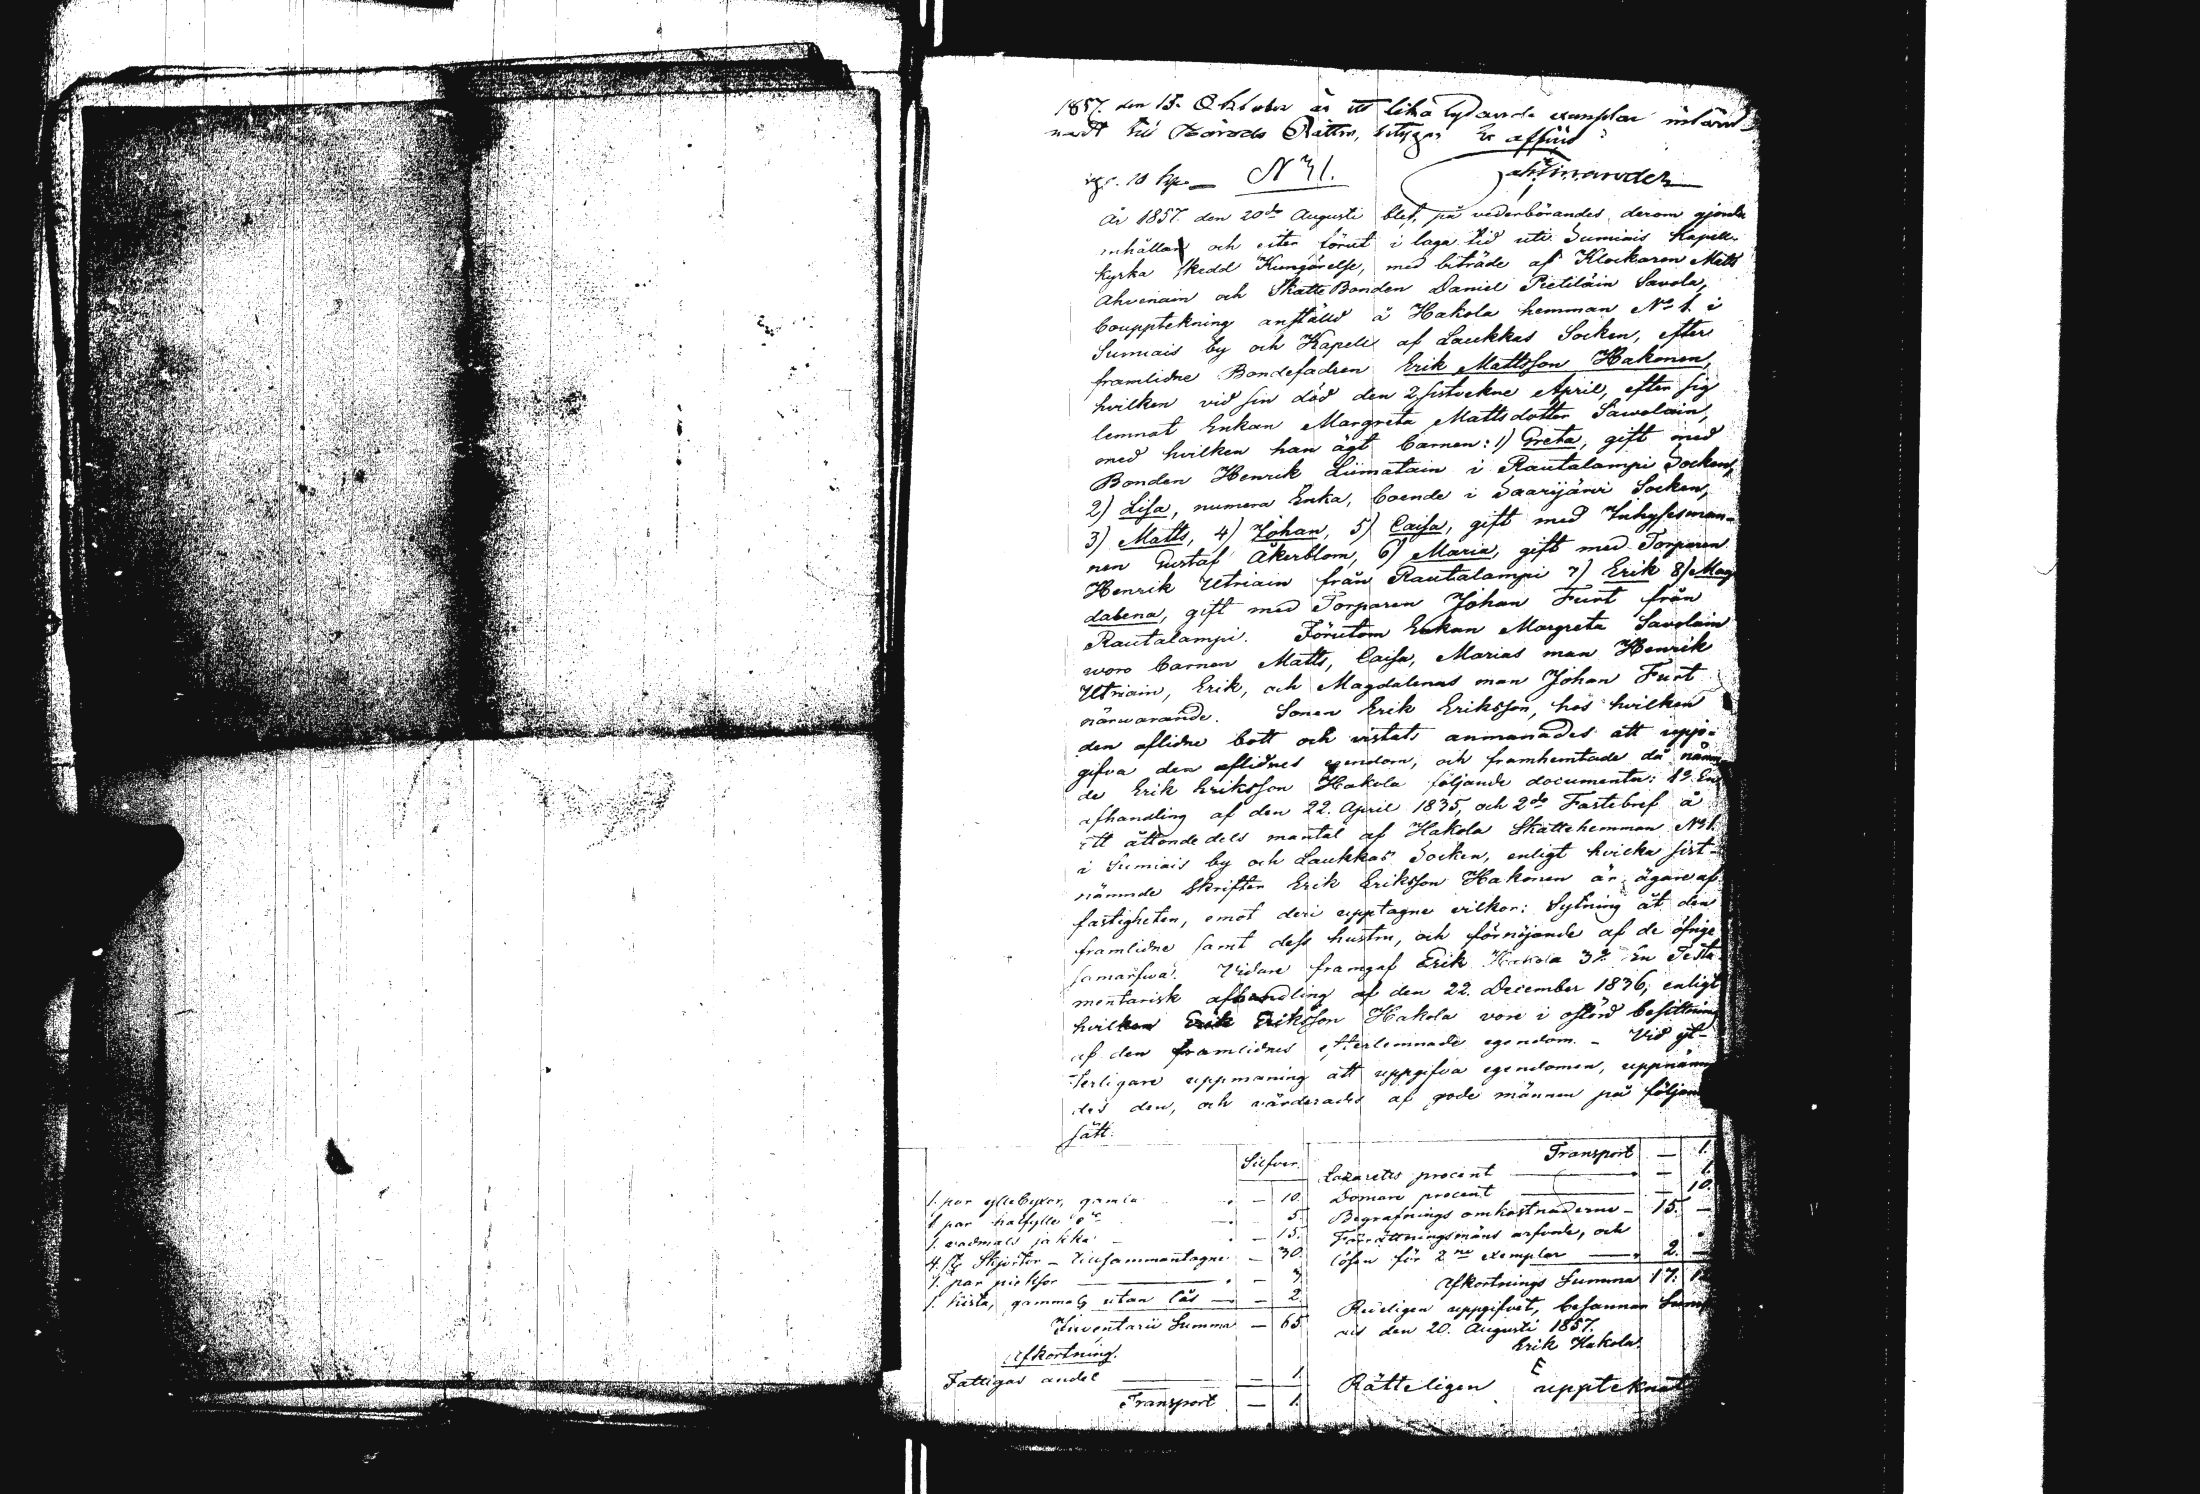 1857. den 15. Oktober är ett lika lydande exemplar inläm-
nadt till Härads Rätten, betygar Ex officio
N:o 1.
År 1857. den 20de Augusti blef, på vederbörandes derom gjorde
anhållan och efter förut i laga tid uti Sumiais Kapell-
kyrka skedd Kungörelse, med biträde af Klockaren Matts
Ahvenain och SkatteBonden Daniel Pietiläin Savola,
bouppteckning anställd å Hakola hemman No 1. i
Sumiais by och Kapell af Laukkas Socken, efter
framlidne Bondefadren Erik Mattsson Hakonen,
hvilken vid sin död den 2 sistvekne April, efter sig
lemnat Enkan Margreta Mattsdotter Sawolain,
med hvilken han ägt barnen: 1) Greta, gift med
Bonden Henrik Liimatain i Rautalampi Socken,
2) Lisa, numera Enka, boende i Saarijärvi Socken,
3) Matts, 4) Johan, 5) Caisa, gift med Inhysesman-
nen Gustaf Åkerblom, 6) Maria, gift med Torparen
Henrik Utriain från Rautalampi 7) Erik 8) Mag
dalena, gift med Torparen Johan Furt från
Rautalampi. Förutom Enkan Margreta Savolain
woro barnen Matts, Caisa, Marias man Henrik
Utriain, Erik, och Magdalenas man Johan Furt
närwarande. Sonen Erik Eriksson, hos hvilken
den aflidne bott och vistats anmanades att upp-
gifva den aflidnes egendom, och framhemtade då nämn
de Erik Eriksson Hakola följande documenter: 1o En
afhandling af den 22. April 1835, och 2do Fastebref å
ett åttondedels mantal af Hakola Skattehemman No 1.
i Sumiais by och Laukkas Socken, enligt hvilka sist-
nämnde skrifter Erik Eriksson Hakonen är ägare af
fastigheten, emot deri upptagne vilkor: Sytning åt den
framlidne samt dess hustru, och förnöjande af de öfrige
samarfwa. Vidare framgaf Erik Hakola 3o En Testa
mentarisk afhandling af den 22. December 1836, enligt
hvilken Erik Eriksson Hakola vore i ostörd besittning
af den framlidnes efterlemnade egendom. – Vid yt-
terligare uppmaning att uppgifva egendomen, uppnämn
des den, och värderades af gode männen på följan
sätt:
Silfver.
1. par yllebyxor, gamla – 10.
1 par halfylle do – 5.
1. vadmals jakka – 15.
4. st. Skjortor – tillsammantagne – 30.
1. par pieksor – 3.
1. kista, gammal, utan lås – 2.
Inventarii Summa – 65
Afkortning.
Fattigas andel – 1.
Transport – 1.
Transport – 1.
Lazaretts procent – 1.
Domare procent – 10.
Begrafnings omkostnaderne – 15. –
Förrättningsmäns arfvode, och
lösen för 2ne exemplar – 2. –
Afkortnings Summa 17. 12
Redeligen uppgifvet, besannan Sumi
ais den 20. Augusti 1857.
Erik Hakola.
E
Rätteligen uppteknat